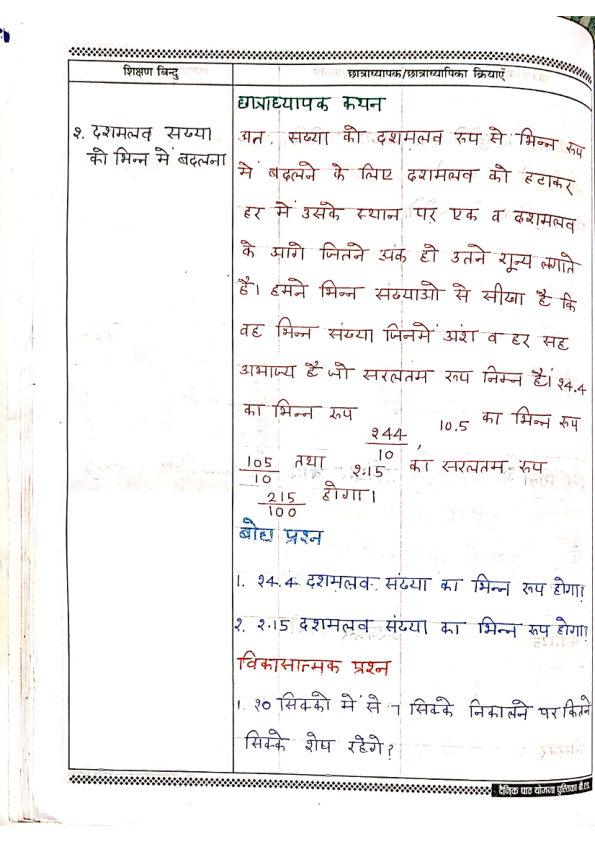 शिक्षण बिन्दु
छात्राध्यापक/छात्राध्यापिका क्रियाएँ
छात्राध्यापक कथन
२. दशमलव सख्या
को भिन्न में बदलना
अत. सख्या को दशमलव रूप से भिन्न रूप
में बदलने के लिए दशमलव को हटाकर
हर में उसके स्थान पर एक व दशमलव
के आगे जितने अंक हो उतने शून्य लगाते
है। हमने भिन्न संख्याओ से सीखा है कि
वह भिन्न संख्या जिनमें अंश व हर सह
अभाज्य है जो सरलतम रूप निम्न है। २4.4
का भिन्न रूप २44/10 , 10.5 का भिन्न रूप
105/10 तथा २.15 का सरलतम रूप
215/100 होगा।
बोध प्रश्न
1. २4.4 दशमलव संख्या का भिन्न रूप होगा?
२. २.15 दशमलव संख्या का भिन्न रूप होगा?
विकासात्मक प्रश्न
1. २0 सिक्को में से 7 सिक्के निकालने पर कितने
सिक्के शेष रहेगे?
दैनिक पाठ योजना पुस्तिका बी.एड.